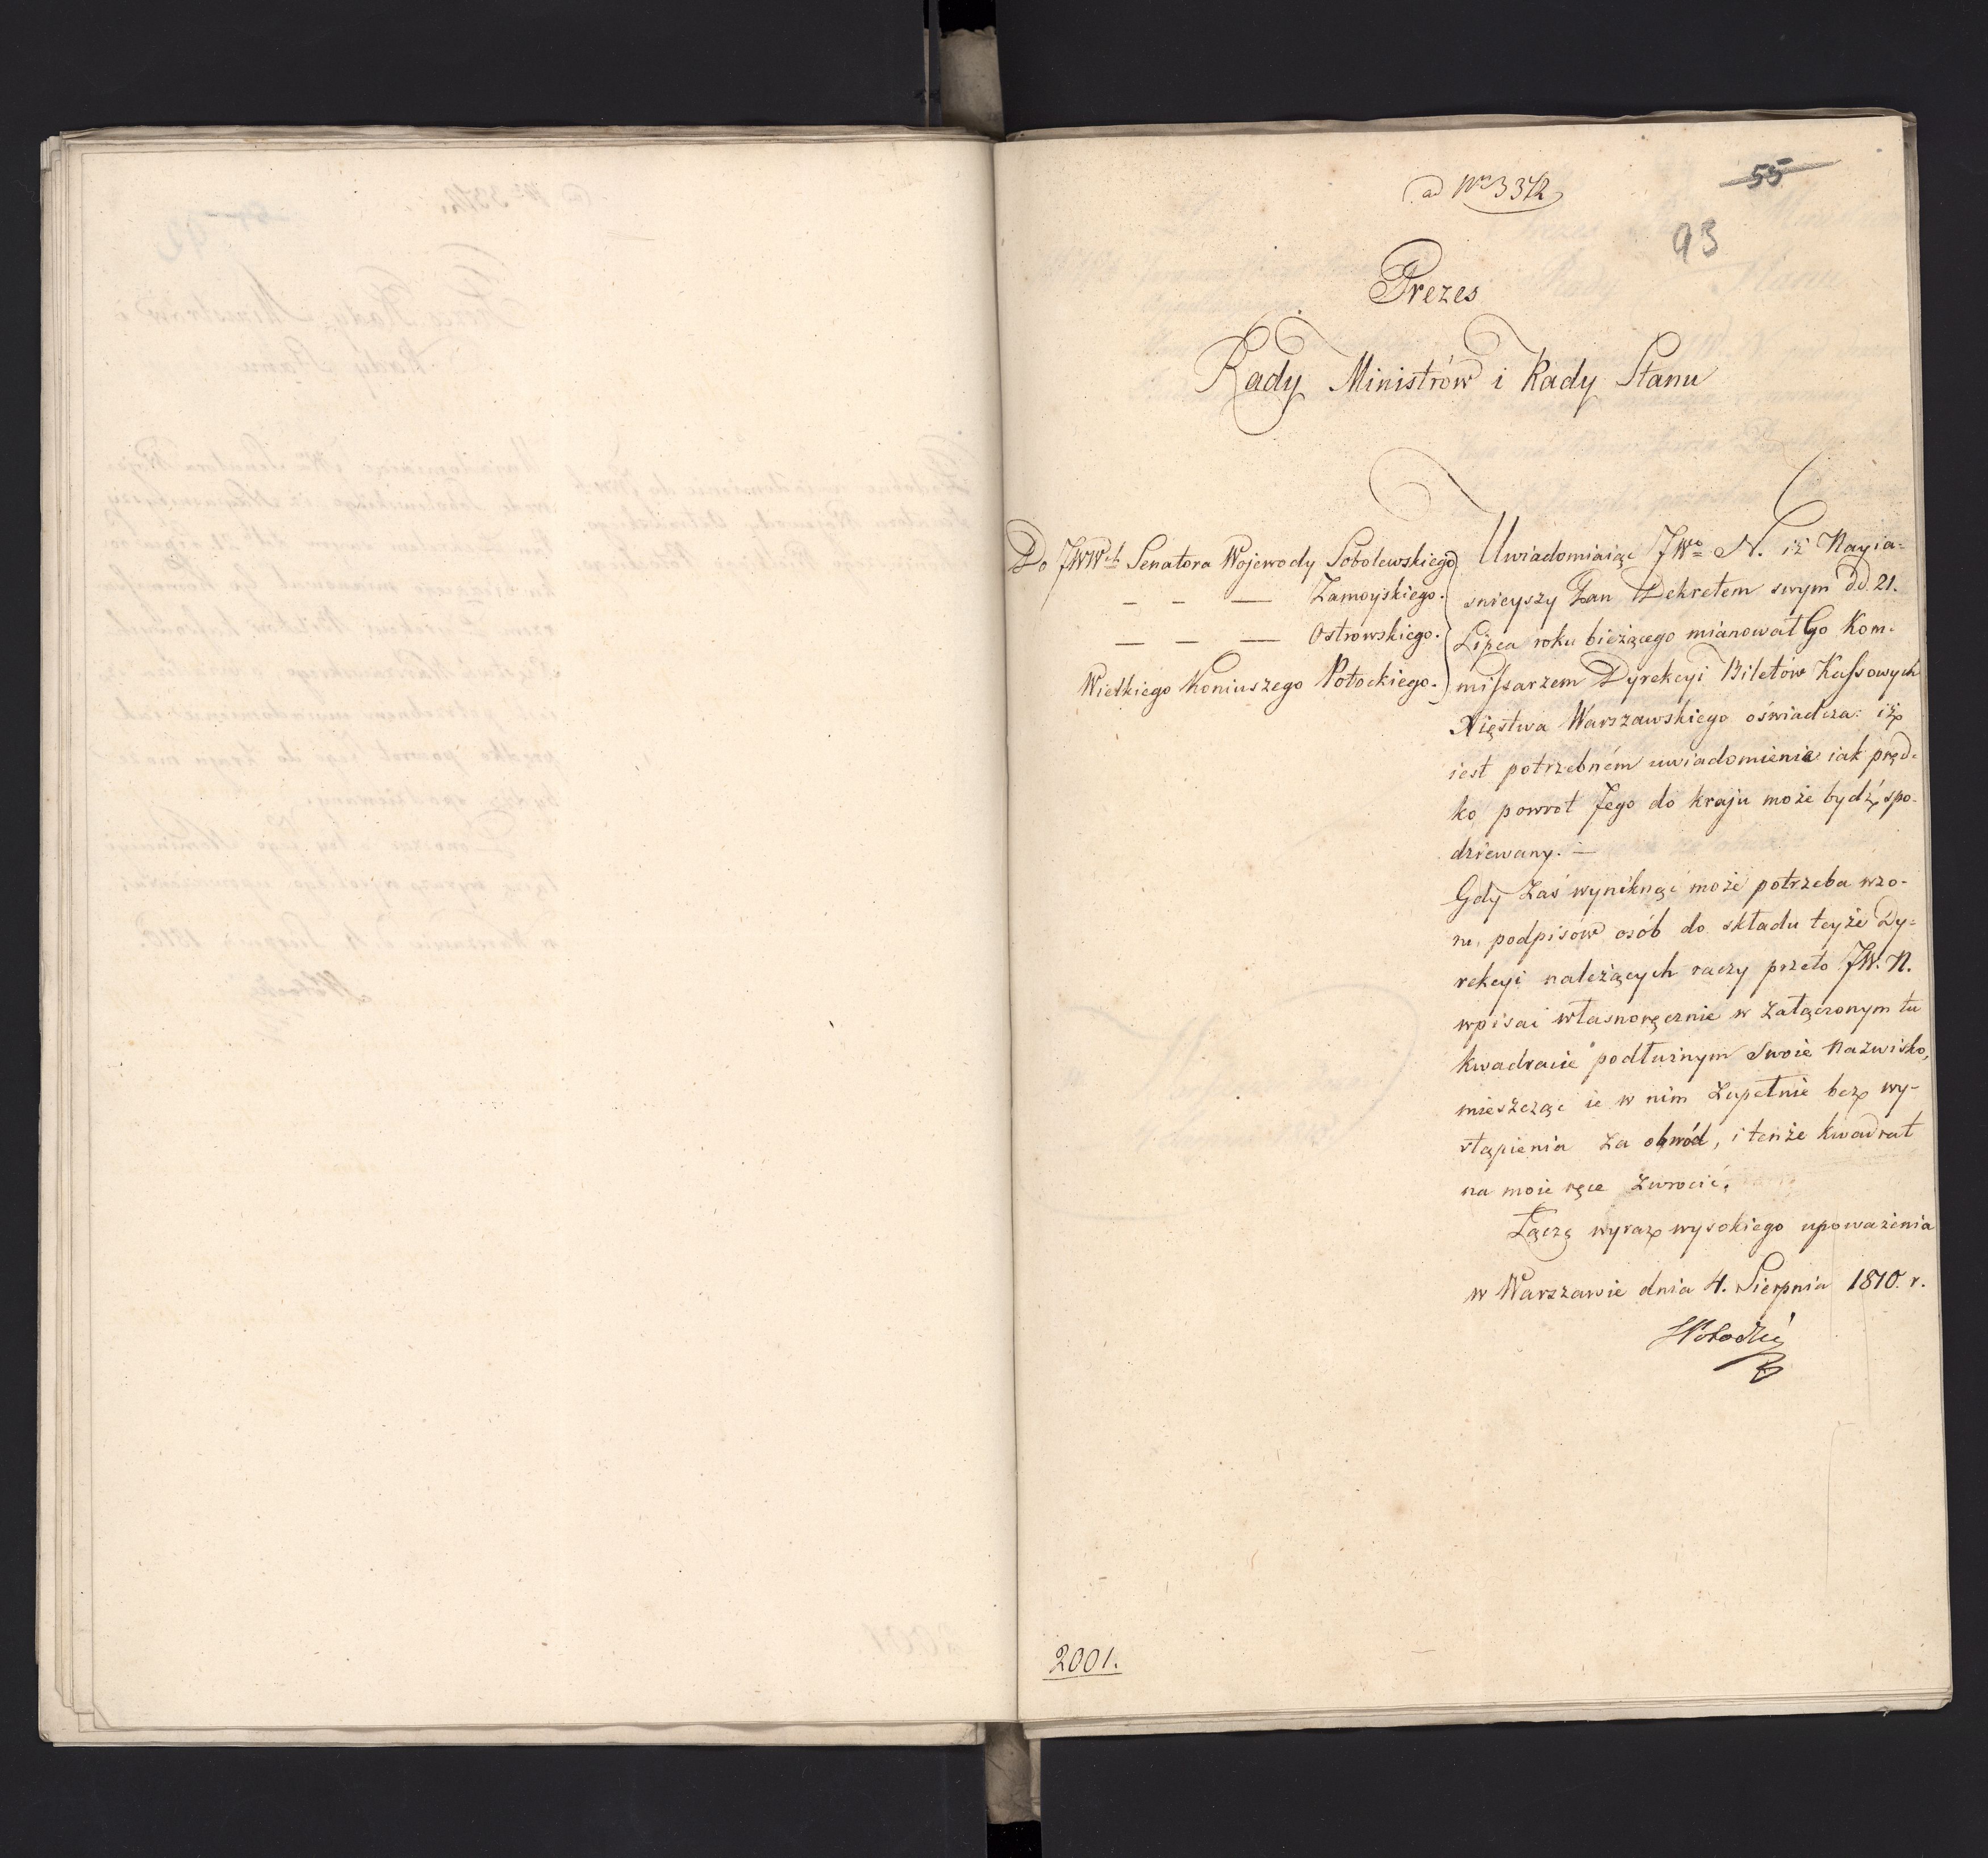 ad Nro 3372
55
93
Prezes
Rady Ministrów i Rady Stanu
Do JWWch Senatora Wojewody Sobolewskiego
— — — Zamoyskiego.
— — — Ostrowskiego.
Wielkiego Koniuszego Potockiego.
Uwiadomiaiąc JWo N. iż Nayia=
śnieyszy Pan Dekretem swym dd. 21.
Lipca roku bieżącego mianował Go Kom=
missarzem Dyrekcyi Biletów Kassowych
Xięstwa Warszawskiego oświadcza: iż
iest potrzebném uwiadomienie iak pręd=
ko powrot Jego do kraju może bydź spo=
dziewany. —
Gdy zaś wyniknąć może potrzeba wzo-
ru, podpisów osób do składu teyże Dy=
rekcyi należących raczy przeto JW. N.
wpisać własnoręcznie w załączonym tu
kwadracie podłużnym Swoie Nazwisko,
mieszcząc ie w nim zupełnie bez wy-
stąpienia za obwód, i tenże kwadrat
na moie ręce zwrocić.
Łączę wyraz wysokiego upoważenia
w Warszawie dnia 4. Sierpnia 1810. r.
2001.